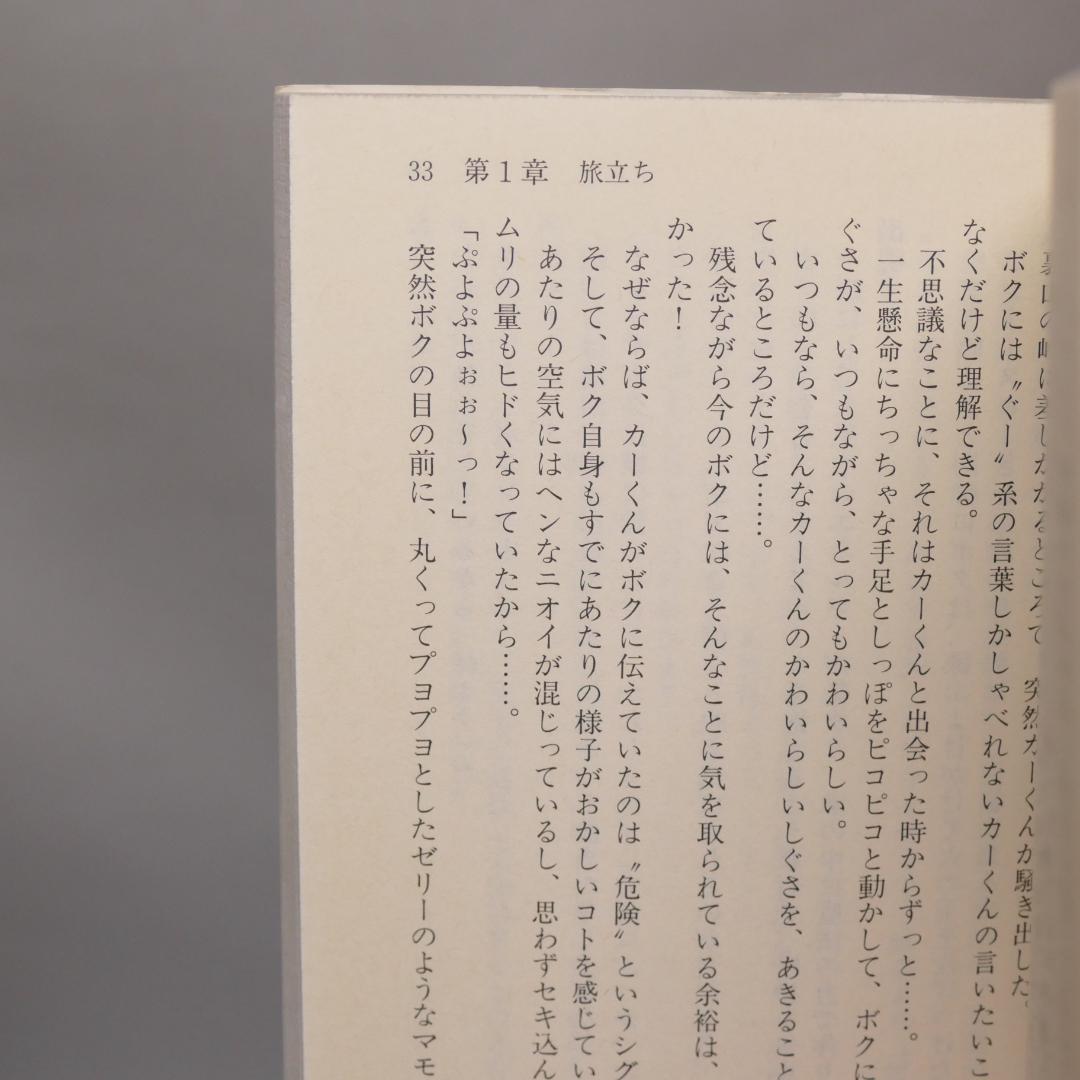 33 第1章 旅立ち
突然カーくんが騒き出した。
ボクには〝ぐー〟系の言葉しかしゃべれないカーくんの言いたいこ
なくだけど理解できる。
不思議なことに、それはカーくんと出会った時からずっと……。
一生懸命にちっちゃな手足としっぽをピコピコと動かして、ボクに
ぐさが、いつもながら、とってもかわいらしい。
いつもなら、そんなカーくんのかわいらしいしぐさを、あきること
ているところだけど……。
残念ながら今のボクには、そんなことに気を取られている余裕は、
かった！
なぜならば、カーくんがボクに伝えていたのは〝危険〟というシグ
そして、ボク自身もすでにあたりの様子がおかしいコトを感じてい
あたりの空気にはヘンなニオイが混じっているし、思わずセキ込ん
ムリの量もヒドくなっていたから……。
「ぷよぷよぉぉ～っ！」
突然ボクの目の前に、丸くってプヨプヨとしたゼリーのようなマモ